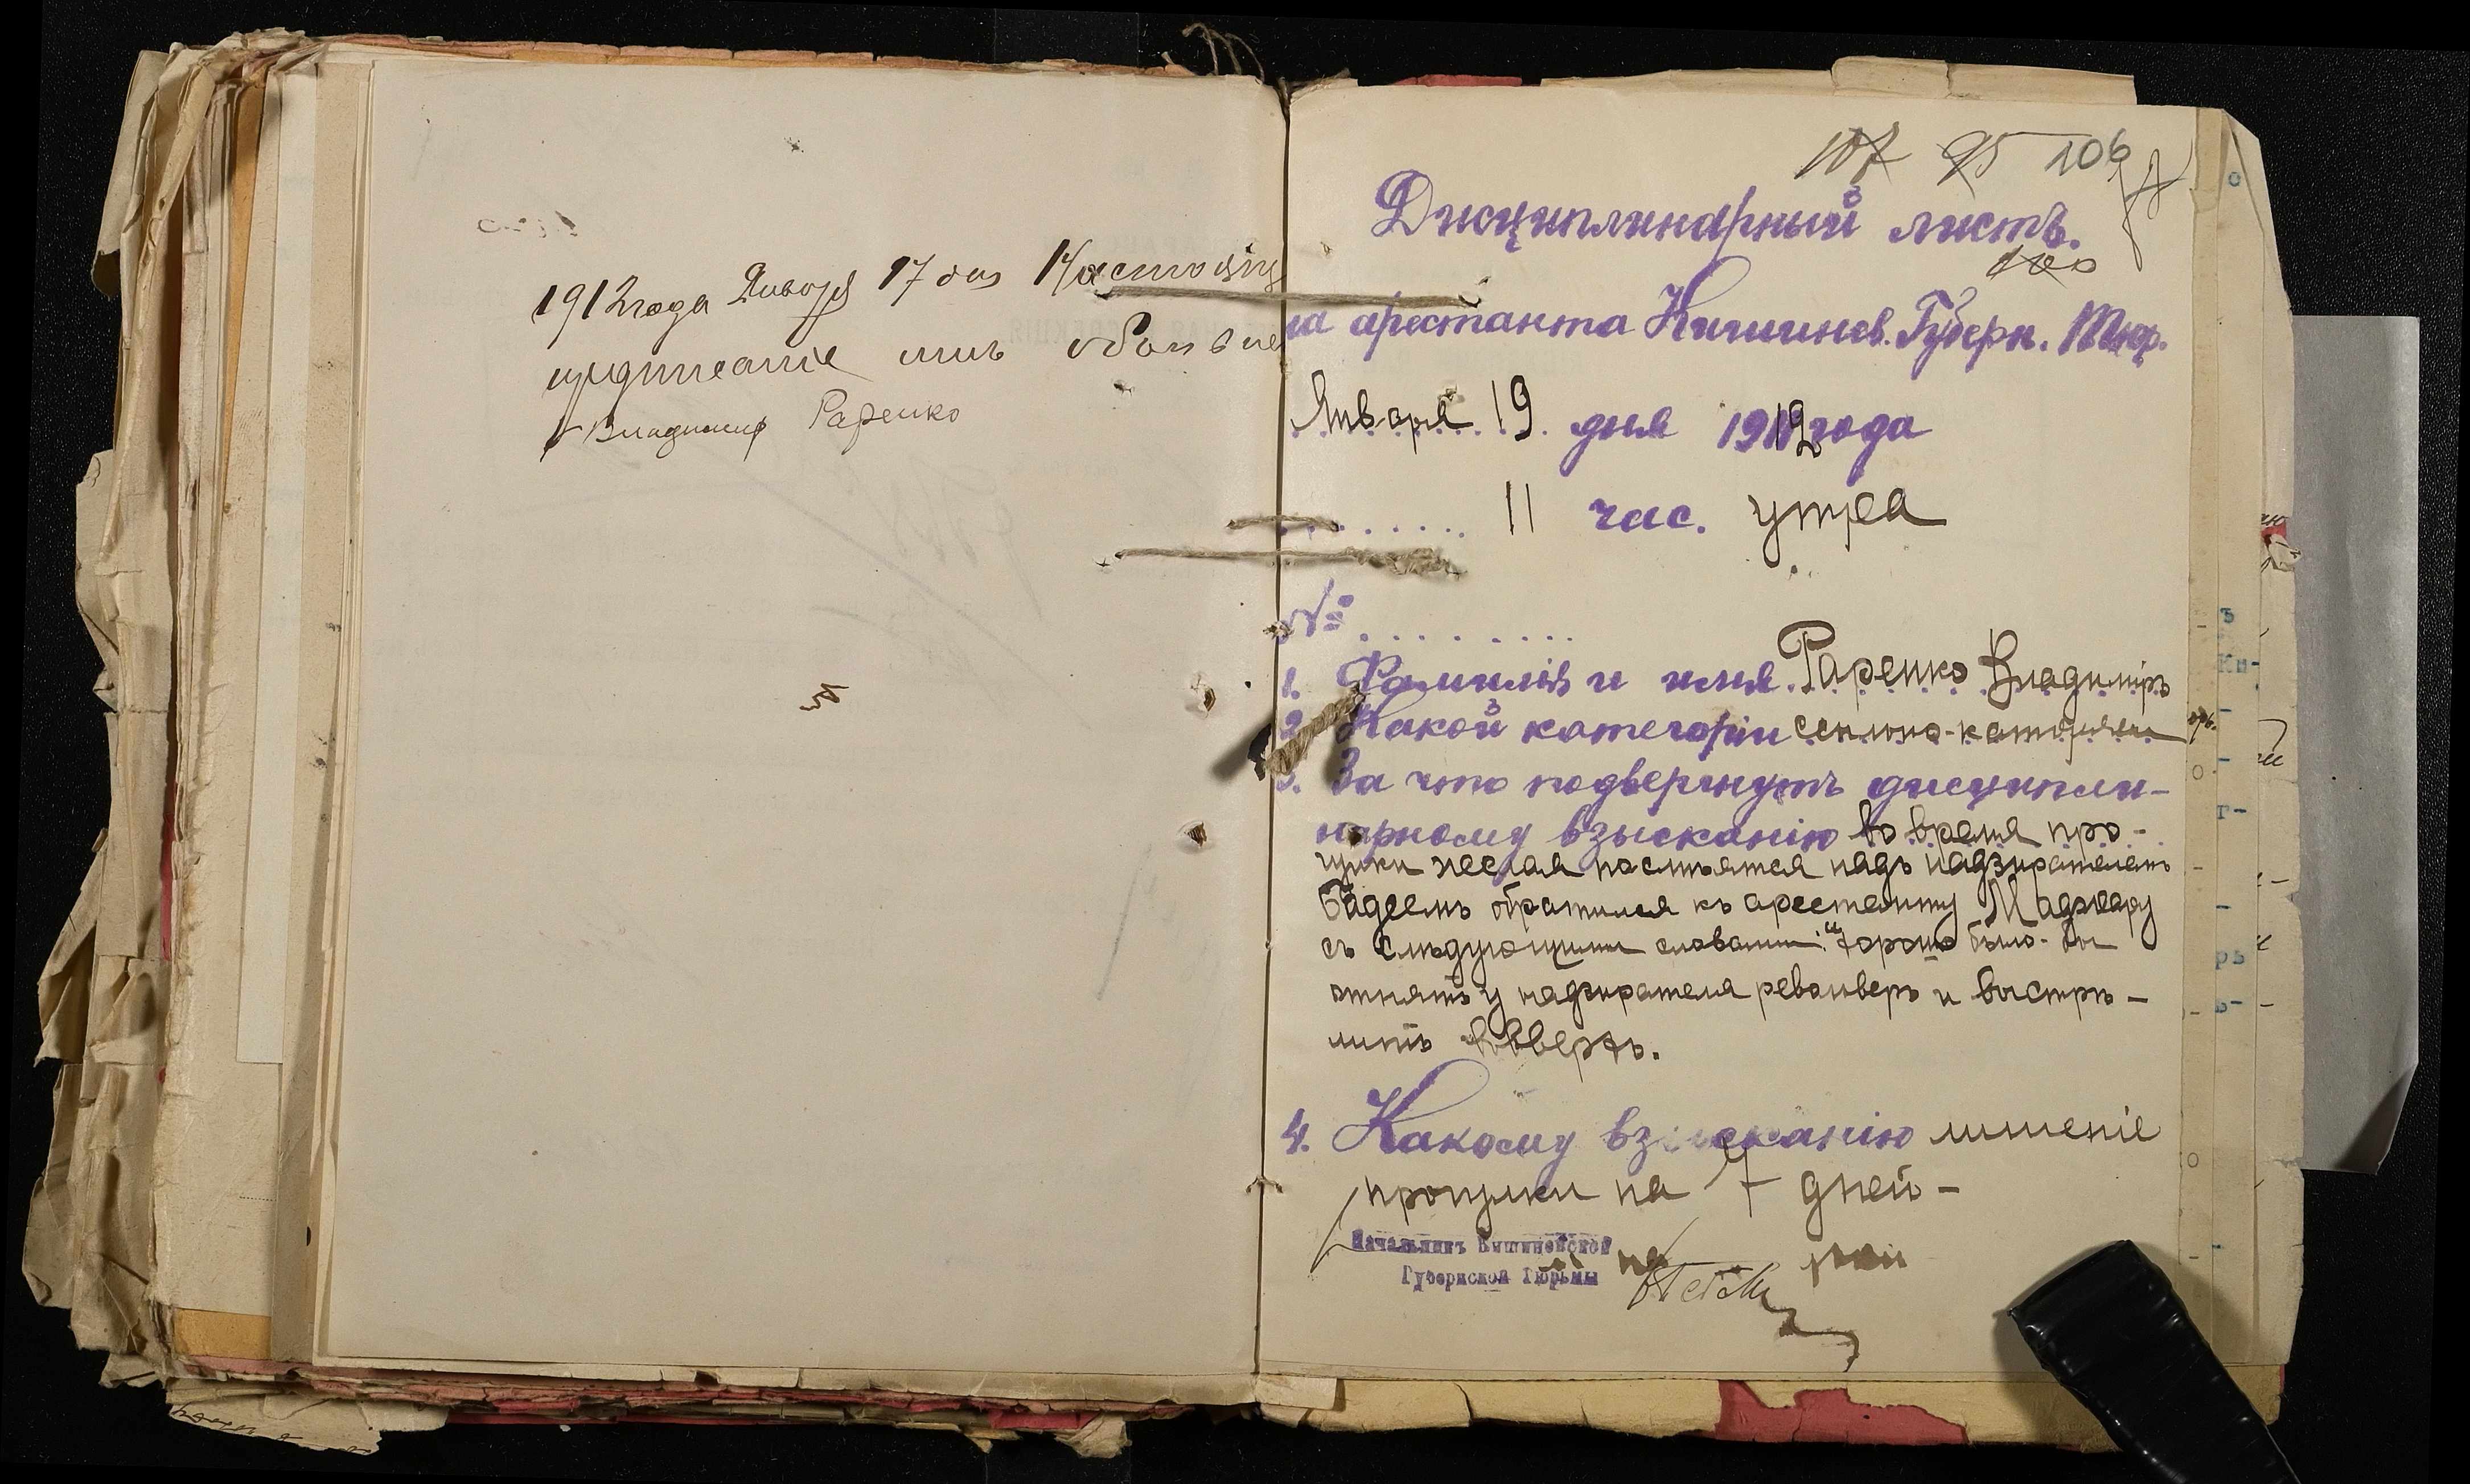 1912 года Января 17 дня Настоящ
предписание мне объявле
Владимир Раренко
107 95 106
Дисциплинарный листъ.
100
на арестанта Кишинев. Губерн. Тюр.
Января 19 дня 1912 года
11 час. утра
№
1. Фамилія и имя Раренко Владиміръ
2. Какой категоріи ссыльно-каторжн
3. За что подвергнутъ дисципли-
нарному взысканію во время про-
гулки желая посмѣятся надъ надзирателемъ
Бадеемъ обратился къ арестанту Маджару
съ слѣдующими словами: "хорошо было-бы
отнять у надзирателя револьверъ и выстрѣ-
лить вверхъ.
4. Какому взысканію лишеніе
прогулки на 7 дней-
Начальникъ Кишиневской
Губернской Тюрьмы